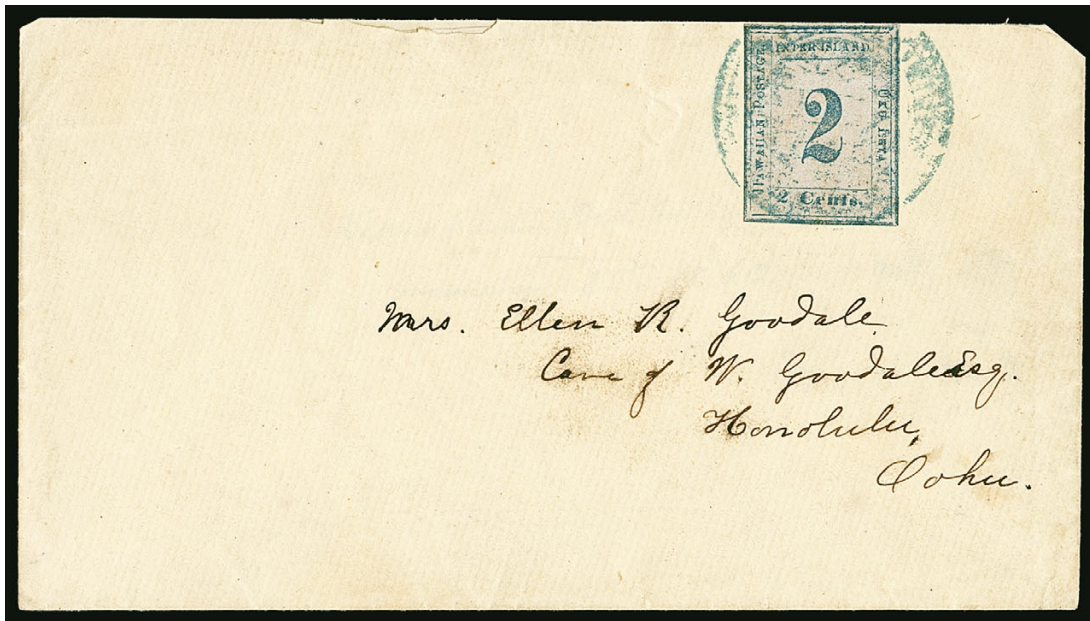 INTER ISLAND.
HAWAIIAN POSTAGE
2
UKU LETA.
2 Cents.
Mrs. Ellen R. Goodale
Care of W. Goodale Esq.
Honolulu,
Oahu.